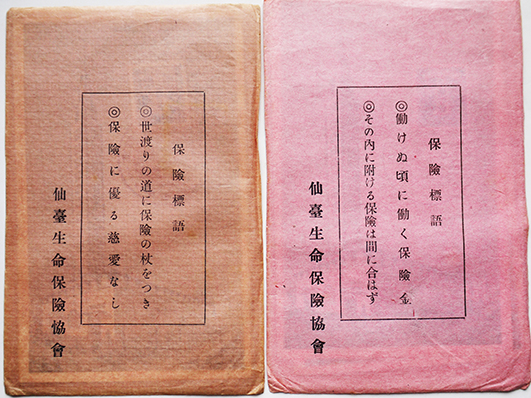 保險標語
◎世渡りの道に保險の杖をつき
◎保險に優る慈愛なし
仙臺生命保險協會
保險標語
◎働けぬ頃に働く保險金
◎その内に附ける保險は間に合はず
仙臺生命保險協會